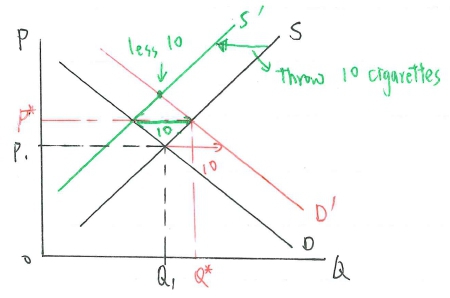 P
S'
S
less 10
throw 10 cigarettes
P*
10
P₁
10
D'
D
0
Q₁
Q*
Q